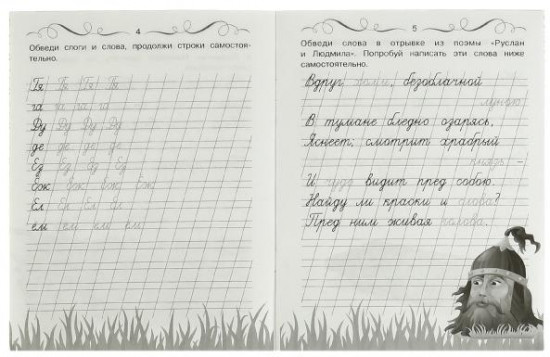 4
Обведи слоги и слова, продолжи строки самостоя-
тельно.
га га га га
Ду Ду Ду Ду
де де де де
Ед Ед Ед Ед
Ел Ел Ел Ел
ем ем ем ем
5
Обведи слова в отрывке из поэмы «Руслан
и Людмила». Попробуй написать эти слова ниже
самостоятельно.
Вдруг холм, безоблачной
луною
В тумане бледно озарясь,
Яснеет; смотрит храбрый
князь –
И чудо видит пред собою.
Найду ли краски и слова?
Пред ним живая голова.